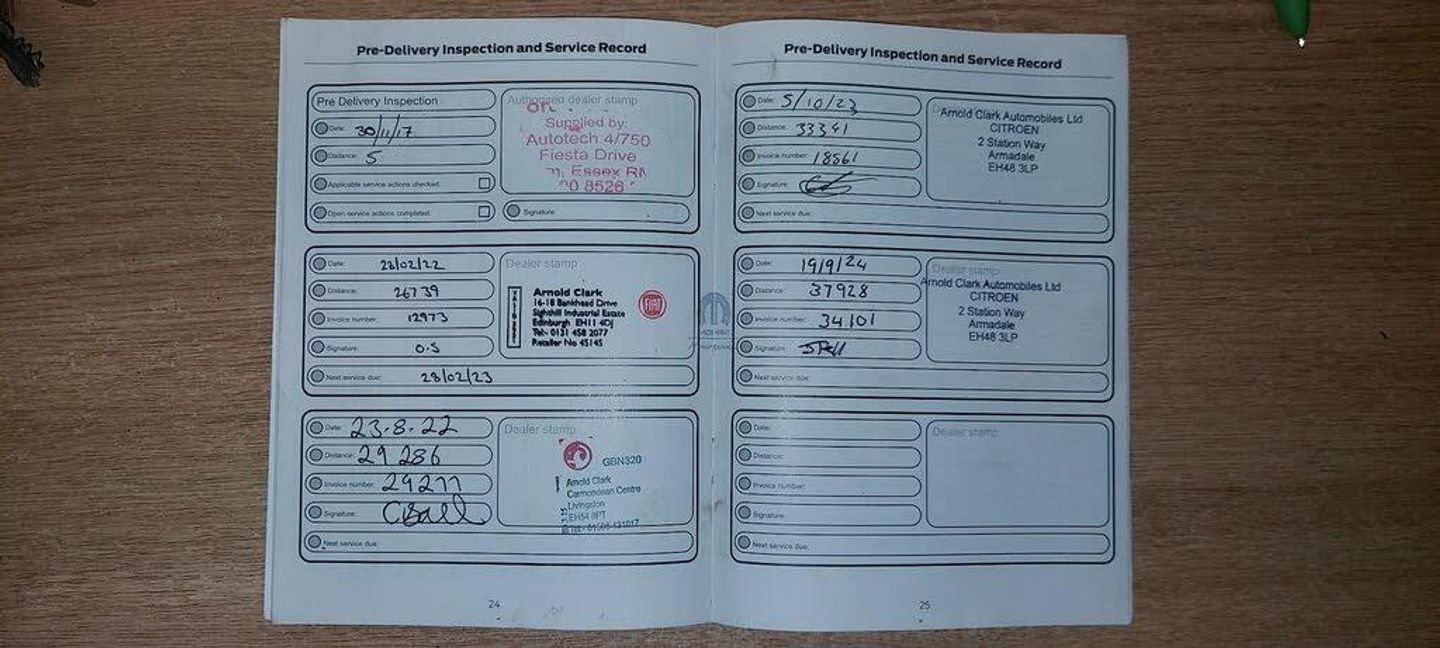 Pre-Delivery Inspection and Service Record
Pre Delivery Inspection
Date: 30/11/17
Distance: 5
Applicable service actions checked:
Open service actions completed:
Authorised dealer stamp
Supplied by:
Autotech 4/750
Fiesta Drive
Essex
0 8526
Signature:
Date: 28/02/22
Distance: 26739
Invoice number: 12973
Signature: O.S
Next service due: 28/02/23
Dealer stamp
Arnold Clark
16-18 Bankhead Drive
Sighthill Industrial Estate
Edinburgh EH11 4DJ
Tel:- 0131 458 2077
Retailer No 45145
FIAT
Date: 23.8.22
Distance: 29286
Invoice number: 29277
Signature:
Next service due:
Dealer stamp
GBN320
Arnold Clark
Carmondean Centre
Livingston
EH54 8PT
24
Pre-Delivery Inspection and Service Record
Date: 5/10/23
Distance: 33341
Invoice number: 18561
Signature:
Next service due:
Arnold Clark Automobiles Ltd
CITROEN
2 Station Way
Armadale
EH48 3LP
Date: 19/9/24
Distance: 37928
Invoice number: 34101
Signature:
Next service due:
Dealer stamp
Arnold Clark Automobiles Ltd
CITROEN
2 Station Way
Armadale
EH48 3LP
Date:
Distance:
Invoice number:
Signature:
Next service due:
Dealer stamp
25